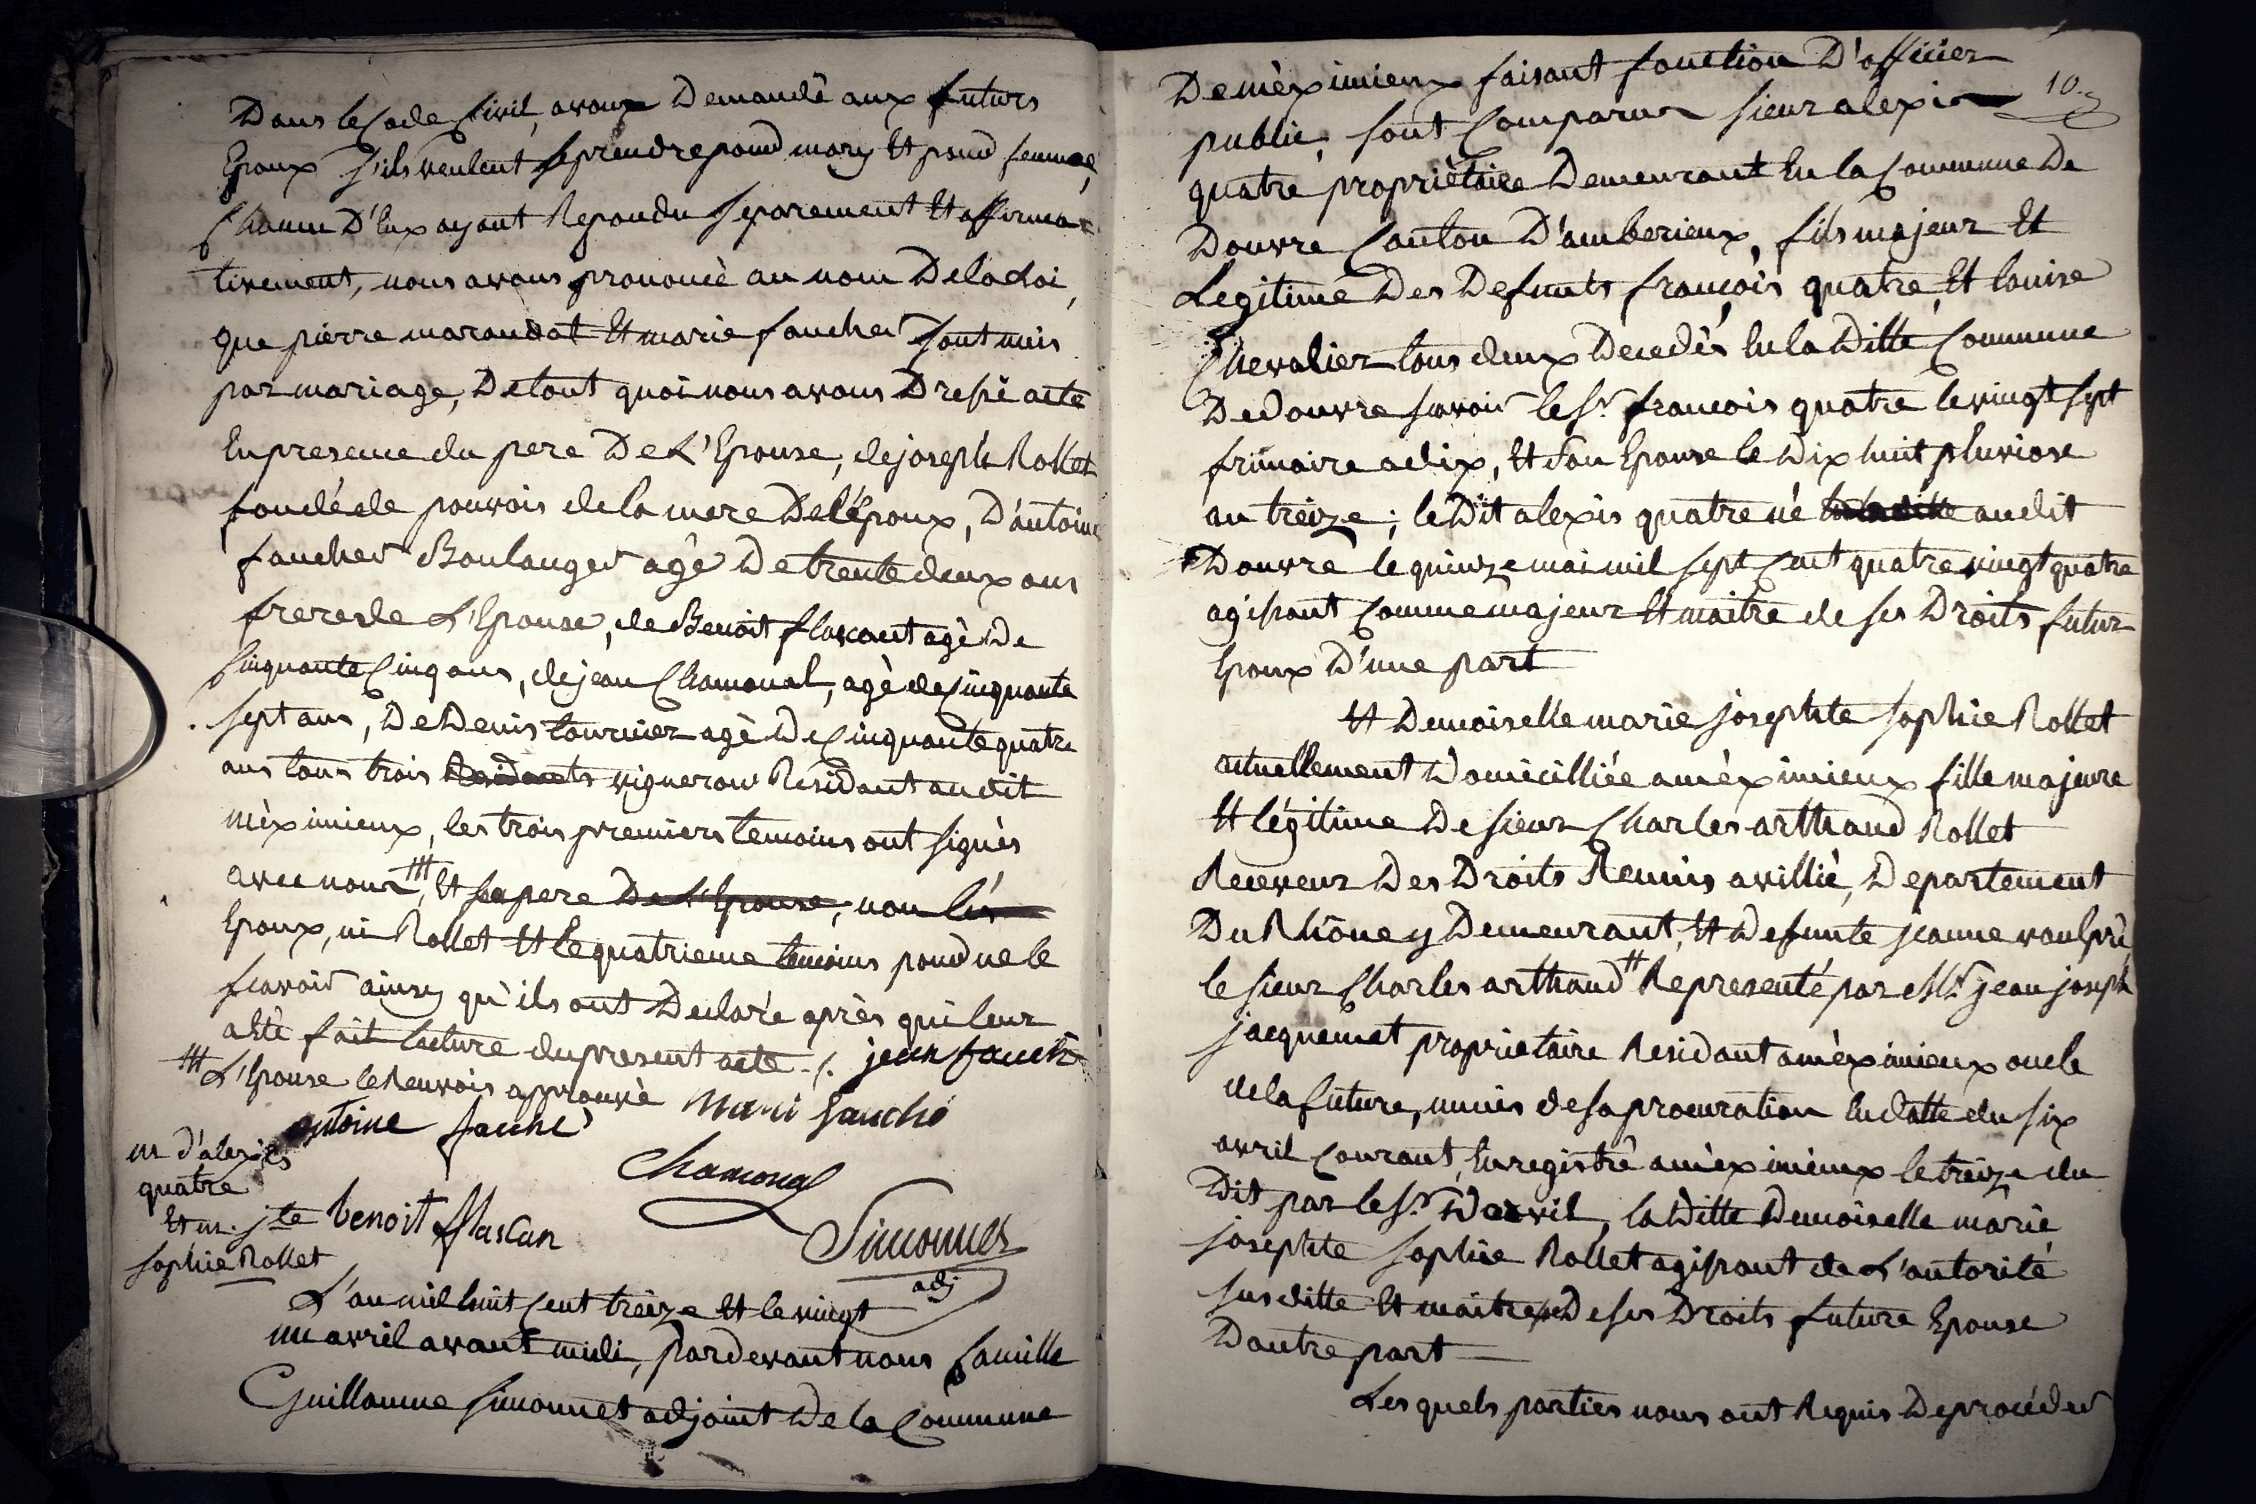 Dans le Code Civil, avons Demandé aux futurs
Epoux s'ils veulent se prendre pour mary Et pour femme,
Chacun D'Eux ayant Repondu separement Et affirma=
tivement, nous avons prononcé au nom De la Loi,
que pierre marandat Et marie faucher sont unis
par mariage, De tout quoi nous avons Dressé acte
En presence du pere De L'Epouse, de joseph Rollet
fondé de pouvoir de la mere De l'époux, D'antoine
faucher Boulanger agé De trente deux ans
frere de L'Epouse, de Benoit flascant agé De
Cinquante Cinq ans, de jean Chamonal, agé de Cinquante
sept ans, De Denis tournier agé De Cinquante quatre
ans tous trois Residants vigneron Residant audit
mèximieux, les trois premiers temoins ont signés
avec nous ttt, Et le pere De L'Epouse, non les
Epoux, ni Rollet Et le quatrieme temoins pour ne le
scavoir ainsy qu'ils ont Declaré après qui leur
a Eté fait lecture du present acte ./. jean fauché
ttt L'Epouse le Renvois approuvé mari fauché
antoine fauché
Chamonal
m d'alexis
quatre
Et m. j.te
sophie Rollet
benoit flascan
Simonnet
adj
L'an mil huit Cent treize Et le vingt
un avril avant midi, Pardevant nous Camille
Guillaume Simonnet adjoint De la Commune
10.
De mèximieux faisant fonction D'officier
public, sont Comparus sieur alexis
quatre propriètaire Demeurant En la Commune De
Douvre Canton D'amberieux, fils majeur Et
Legitime Des Defunts françois quatre, Et louise
Chevalier tous deux Decedés En la Ditte Commune
De douvre savoir le S.r francois quatre le vingt sept
frimaire a dix, Et son Epouse le Dix huit pluviose
an treize; le Dit alexis quatre né En la ditte audit
Douvre le quinze mai mil sept Cent quatre vingt quatre
agissant Comme majeur Et maitre de ses Droits futur
Epoux D'une part
Et Demoiselle marie josephte sophie Rollet
actuellement Domicilliée a mèximieux fille majeure
Et légitime De sieur Charles arthaud Rollet
Receveur Des Droits Reunis a villié, Departement
Du Rhône y Demeurant, Et Defunte jeanne vaulpré
le sieur Charles arthaud tt Representé par M.r jean joseph
jacquemet proprietaire Residant a mèximieux oncle
de la future, munis de sa procuration En datte du six
avril Courant, Enregistré a mèximieux le treize du
Dit par le S.r, la Ditte Demoiselle marie
josephte sophie Rollet agissant de L'autorité
susditte Et maitresse De ses Droits future Epouse
D'autre part
Les quels parties nous ont Requis De procéder